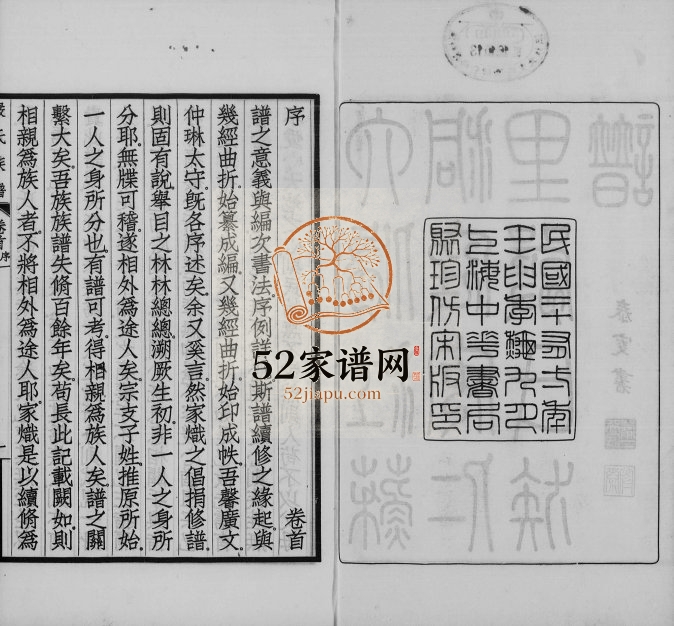 民國二十又一年
壬申季秋九月
上海中華書局
聚珍仿宋版印
序 卷首
譜之意義與編次書法序例詳斯譜續修之緣起與
幾經曲折始纂成編又幾經曲折始印成帙吾馨廣文
仲琳太守旣各序述矣余又奚言然家熾之倡捐修譜
則固有說舉目之林林總總溯厥生初非一人之身所
分耶無牒可稽遂相外爲途人矣宗支子姓推原所始
一人之身所分也有譜可考得相親爲族人矣譜之關
繫大矣吾族族譜失脩百餘年矣苟長此記載闕如則
相親爲族人者不將相外爲途人耶家熾是以續脩爲
氏族譜 卷首 序
52家谱网
52jiapu.com